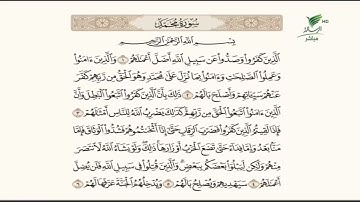 سُورَةُ مُحَمَّدٍ
بِسْمِ اللَّهِ الرَّحْمَٰنِ الرَّحِيمِ
الَّذِينَ كَفَرُوا وَصَدُّوا عَن سَبِيلِ اللَّهِ أَضَلَّ أَعْمَالَهُمْ ١ وَالَّذِينَ ءَامَنُوا
وَعَمِلُوا الصَّالِحَاتِ وَءَامَنُوا بِمَا نُزِّلَ عَلَىٰ مُحَمَّدٍ وَهُوَ الْحَقُّ مِن رَّبِّهِمْ كَفَّرَ
عَنْهُمْ سَيِّئَاتِهِمْ وَأَصْلَحَ بَالَهُمْ ٢ ذَٰلِكَ بِأَنَّ الَّذِينَ كَفَرُوا اتَّبَعُوا الْبَاطِلَ وَأَنَّ
الَّذِينَ ءَامَنُوا اتَّبَعُوا الْحَقَّ مِن رَّبِّهِمْ كَذَٰلِكَ يَضْرِبُ اللَّهُ لِلنَّاسِ أَمْثَالَهُمْ ٣
فَإِذَا لَقِيتُمُ الَّذِينَ كَفَرُوا فَضَرْبَ الرِّقَابِ حَتَّىٰ إِذَا أَثْخَنتُمُوهُمْ فَشُدُّوا الْوَثَاقَ فَإِمَّا
مَنًّا بَعْدُ وَإِمَّا فِدَاءً حَتَّىٰ تَضَعَ الْحَرْبُ أَوْزَارَهَا ذَٰلِكَ وَلَوْ يَشَاءُ اللَّهُ لَانتَصَرَ
مِنْهُمْ وَلَٰكِن لِّيَبْلُوَ بَعْضَكُم بِبَعْضٍ وَالَّذِينَ قُتِلُوا فِي سَبِيلِ اللَّهِ فَلَن يُضِلَّ
أَعْمَالَهُمْ ٤ سَيَهْدِيهِمْ وَيُصْلِحُ بَالَهُمْ ٥ وَيُدْخِلُهُمُ الْجَنَّةَ عَرَّفَهَا لَهُمْ ٦
HD
مباشر